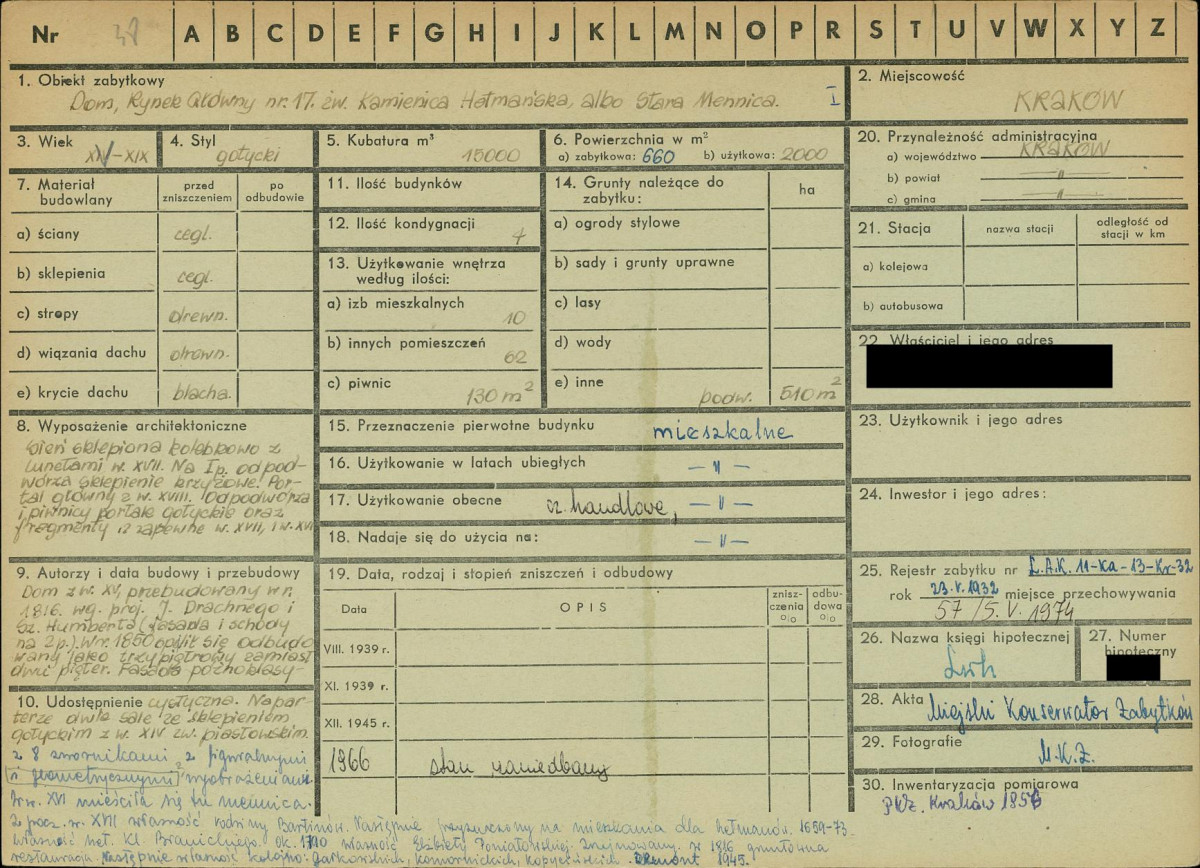 Nr 38 A B C D E F G H I J K L M N O P R S T U V W X Y Z
1. Obiekt zabytkowy
Dom, Rynek Główny nr. 17. zw. Kamienica Hetmańska, albo Stara Mennica. I
2. Miejscowość
KRAKÓW
3. Wiek
XIV-XIX
4. Styl
gotycki
5. Kubatura m³
15000
6. Powierzchnia w m²
a) zabytkowa: 660 b) użytkowa: 2000
20. Przynależność administracyjna
a) województwo KRAKÓW
b) powiat —"—
c) gmina —"—
7. Materiał budowlany
przed zniszczeniem
po odbudowie
a) ściany cegl.
b) sklepienia cegl.
c) stropy drewn.
d) wiązania dachu drewn.
e) krycie dachu blacha.
11. Ilość budynków
12. Ilość kondygnacji
4
13. Użytkowanie wnętrza według ilości:
a) izb mieszkalnych
10
b) innych pomieszczeń
62
c) piwnic
130 m²
14. Grunty należące do zabytku:
ha
a) ogrody stylowe
b) sady i grunty uprawne
c) lasy
d) wody
e) inne
podw. 510 m²
21. Stacja
nazwa stacji
odległość od stacji w km
a) kolejowa
b) autobusowa
22. Właściciel i jego adres
8. Wyposażenie architektoniczne
Sień sklepiona kolebkowo z
lunetami w. XVII. Na I p. od pod-
wórza sklepienie krzyżowe. Por-
tal główny z w. XVIII. Od podwórza
i piwnicy portale gotyckie oraz
fragmenty zapewne w. XVII, i w. XVI
15. Przeznaczenie pierwotne budynku mieszkalne
16. Użytkowanie w latach ubiegłych —"—
17. Użytkowanie obecne cz. handlowe, —"—
18. Nadaje się do użycia na: —"—
23. Użytkownik i jego adres
24. Inwestor i jego adres:
9. Autorzy i data budowy i przebudowy
Dom z w. XV, przebudowany w r.
1816. wg. proj. J. Drachnego i
Sz. Humberta (fasada i schody
na 2 p.). W r. 1850 odbudo
wany jako trzypiętrowy zamiast
dwu pięter. Fasada późnoklasy-
19. Data, rodzaj i stopień zniszczeń i odbudowy
Data
OPIS
zniszczenia %
odbudowa %
VIII. 1939 r.
XI. 1939 r.
XII. 1945 r.
1966 stan zaniedbany
25. Rejestr zabytku nr L.A.K. 11-Ka-13-Kr-32
rok 23.V.1932 miejsce przechowywania
57/5.V.1974
26. Nazwa księgi hipotecznej
Lwh
27. Numer hipoteczny
10. Udostępnienie cystyczna. Na par-
terze dwie sale ze sklepieniem
gotyckim z w. XIV zw. piastowskim.
z 8 zwornikami z figuralnymi
i geometrycznymi wyobrażeniami.
W w. XVI mieściła się tu mennica.
Z pocz. w. XVII własność rodziny Bartinów. Następnie przeznaczony na mieszkania dla hetmanów. 1659-73
własność het. Kl. Branickiego. Ok. 1790 własność Elżbiety Poniatowskiej. W 1816 gruntowna
restauracja. Następnie własność kolejno: Jaxkowskich, Komornickich, Kopycińskich. Remont 1945.
28. Akta
Miejski Konserwator Zabytków
29. Fotografie
M.K.Z.
30. Inwentaryzacja pomiarowa
PKZ. Kraków 1956